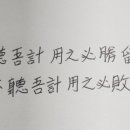 聽吾計用之必勝留
聽吾計用之必敗